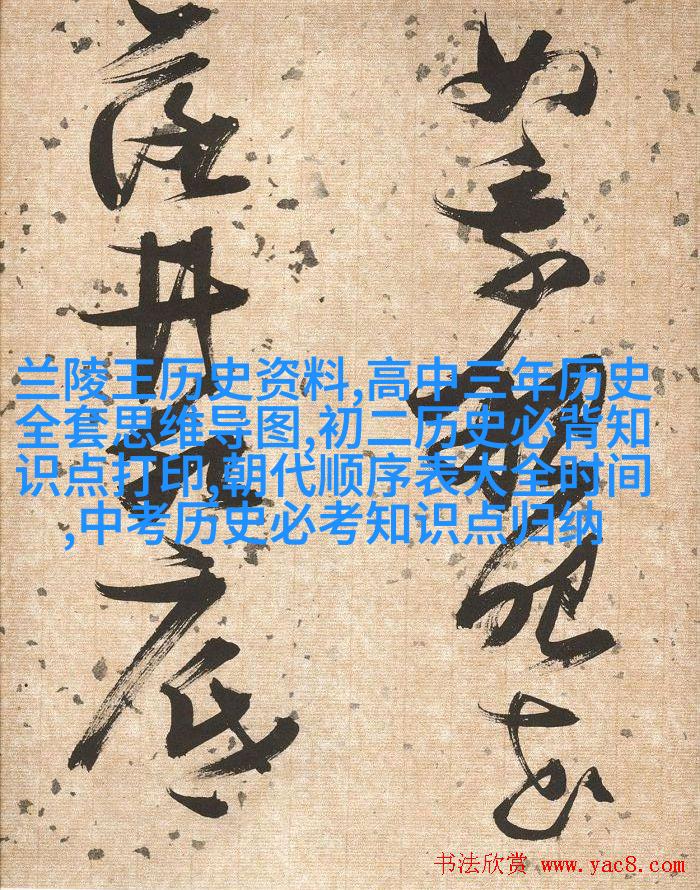 似乘船眼花
落井水底
兰陵王历史资料,高中三年历史
全套思维导图,初二历史必背知
识点打印,朝代顺序表大全时间
,中考历史必考知识点归纳
书法欣赏 www.yac8.com